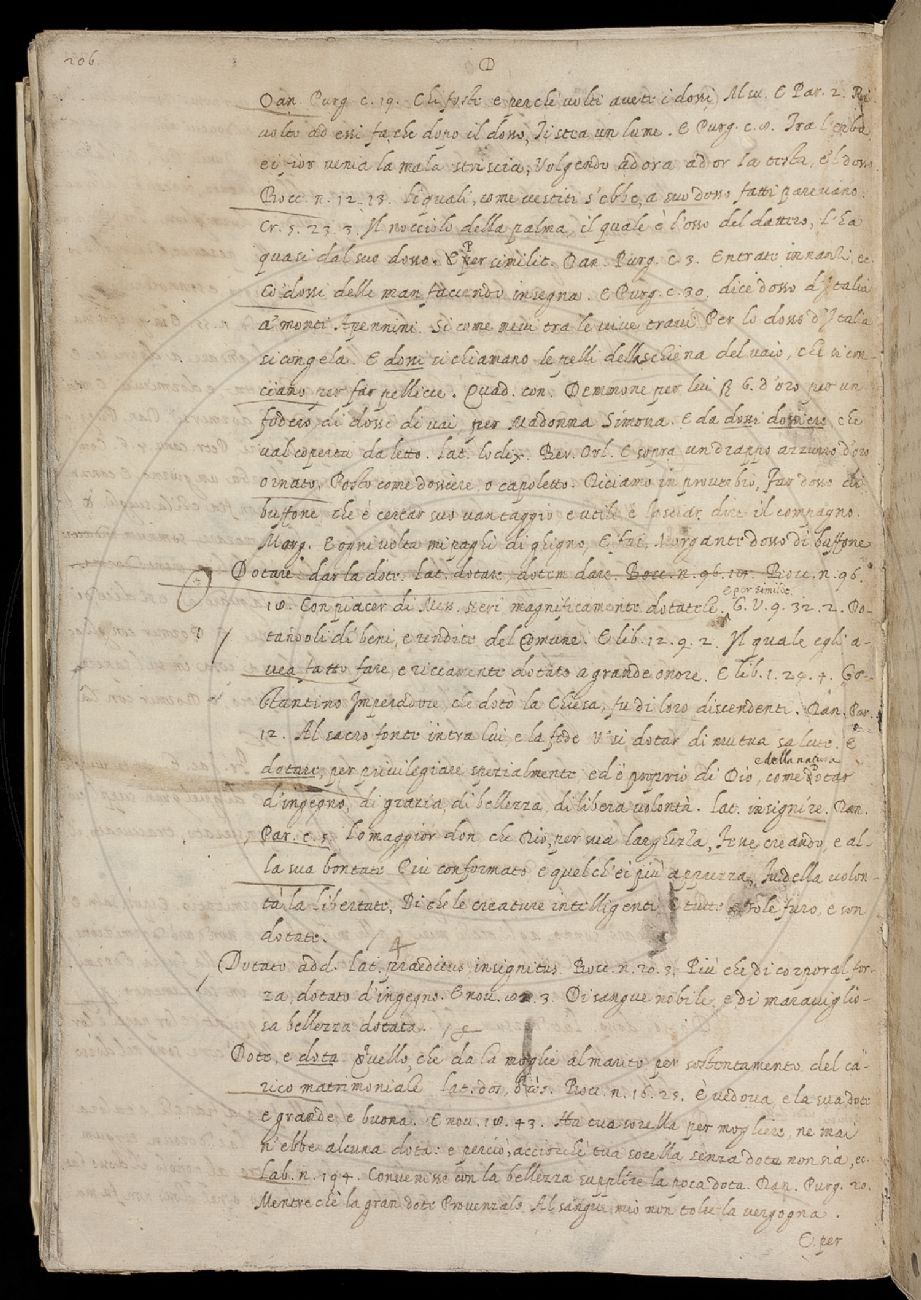 206
D
Dan. Purg. c. 19. Chi foste e perchè volti avete i dossi Al su. E Par. 2. Ri-
volto ad essi fa, che dopo il dosso, Ti stea un lume. E Purg. c. 8. Tra l'erba
e i fior venia la mala striscia, Volgendo ad ora ad or la testa, e 'l dosso
Bocc. n. 12. 13. li quali, come vestiti s'ebbe, a suo dosso fatti parevano.
Cr. 5. 23. 3. Il nocciolo della palma, il quale è l'osso del dattero, l'ha
quasi dal suo dosso. E per similit. Dan. Purg. c. 3. Entrato innanzi, ec.
Co i dossi delle man faccendo insegna. E Purg. c. 30. dice dosso d'Italia
a' monti Apennini. Si come neve tra le vive travi Per lo dosso d'Italia
si congela. E dossi si chiamano le pelli della schiena del vaio, che si con-
ciano per far pellicce. Quad. con. Demmone per lui 6. d'oro per un
fodero, di dossi di vai, per Madonna Simona. E da dossi dossiere che
val coperta da letto. lat. lodex. Ber. Orl. E sopra un drappo azzurro d'oro
ornato, Posto come dossiere, o capoletto. Diciamo in proverbio, Far dosso di
buffone che è cercar suo vantaggio e utile, e lasciar dire il compagno.
Morg. E ogni volta mi paghi di ghigno, E fai Morgante dosso di buffone
Dotare dar la dote. lat. dotare, dotem dare. Bocc. n. 96. 18. Bocc. n. 96.
e per similit.
18. Con piacer di Mess. Neri magnificamente dotatele. G. V. 9. 32. 2. Do-
tandoli di beni, e rendite del Comune. E lib. 12. 9. 2. Il quale egli a-
vea fatto fare, e riccamente dotato a grande onore. E lib. 1. 29. 4. Co-
stantino Imperadore, che dotò la Chiesa, fu di loro discendenti. Dan. Par.
12. Al sacro fonte intra lui, e la fede U' si dotar di mutua salute. E
e della natura
dotare, per privilegiare spezialmente ed è proprio di Dio, come dotar
d'ingegno, di grazia, di bellezza, di libera volontà. lat. insignire. Dan.
Par. c. 5. lo maggior don, che Dio, per sua larghezza, Fesse creando, e al-
la sua bontate Più conformato e quel ch'ei più apprezza, Fu della volon-
tà la libertate, Di che le creature intelligenti E tutte e sole furo, e son
dotate.
Dotato add. lat. praeditus, insignitus. Bocc. n. 20. 3. Più che di corporal for-
za, dotato d'ingegno. E nov. 3. Di sangue nobile, e di maraviglio-
sa bellezza dotata.
Dote, e dota Quello, che dà la moglie al marito per sostentamento del ca-
rico matrimoniale lat. dos, Bocc. n. 16. 25. È vedova, e la sua dote
è grande, e buona. E nov. 18. 43. Ha tua sorella per mogliere, ne mai
n'ebbe alcuna dota: e perciò, acciocchè tua sorella senza dote non sia, ec.
Lab. n. 194. Convenisse con la bellezza supplire la poca dota. Dan. Purg. 20.
Mentre chè la gran dote Provenzale Al sangue mio non tolse la vergogna.
E per